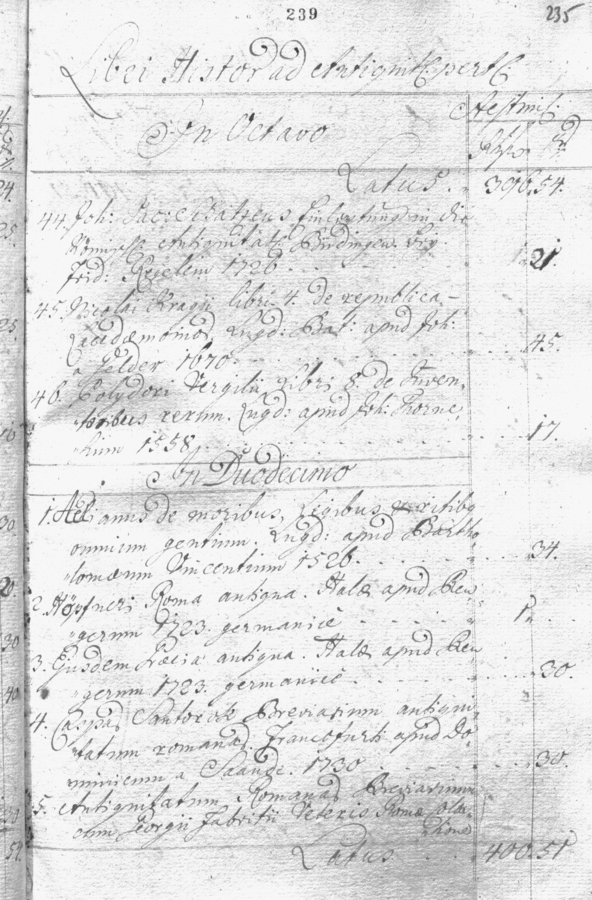 239
235
Libri Histor ad Antiquit: pert:
In Octavo
Aestim:
Latus. 396. 54.
44. Joh: Jac: Einleitung in die
Römische Antiquität: Büdingen
Frid: Regelein 1726 21.
45. Nicolai Kragii libri 4. de republica
Lacedæmonior. Lugd: Bat: apud Joh:
a Gelder 1670. 45.
46. Polydori Vergilii Libri 8. de Inven-
toribus rerum. Lugd: apud Joh: Torne,
sium 1558. 17.
In Duodecimo
1. anus de moribus, Legibus & ritibus
omnium gentium. Lugd: apud Bartho
lomæum Vincentium 1526. 34.
2. Höpfneri Roma antiqua. Halæ apud Ren
gerum 1723. germanicè 1.
3. Ejusdem Græcia antiqua. Halæ apud Ren
gerum 1723. germanicè 30.
4. Caspar Breviarium antiqui-
tatum romanar. Francofurti apud Do
minicum a Saande. 1730 30.
5. Antiquitatum Romanar Breviarium
olim Georgii Fabritii Veteris Romæ
Latus 400. 51